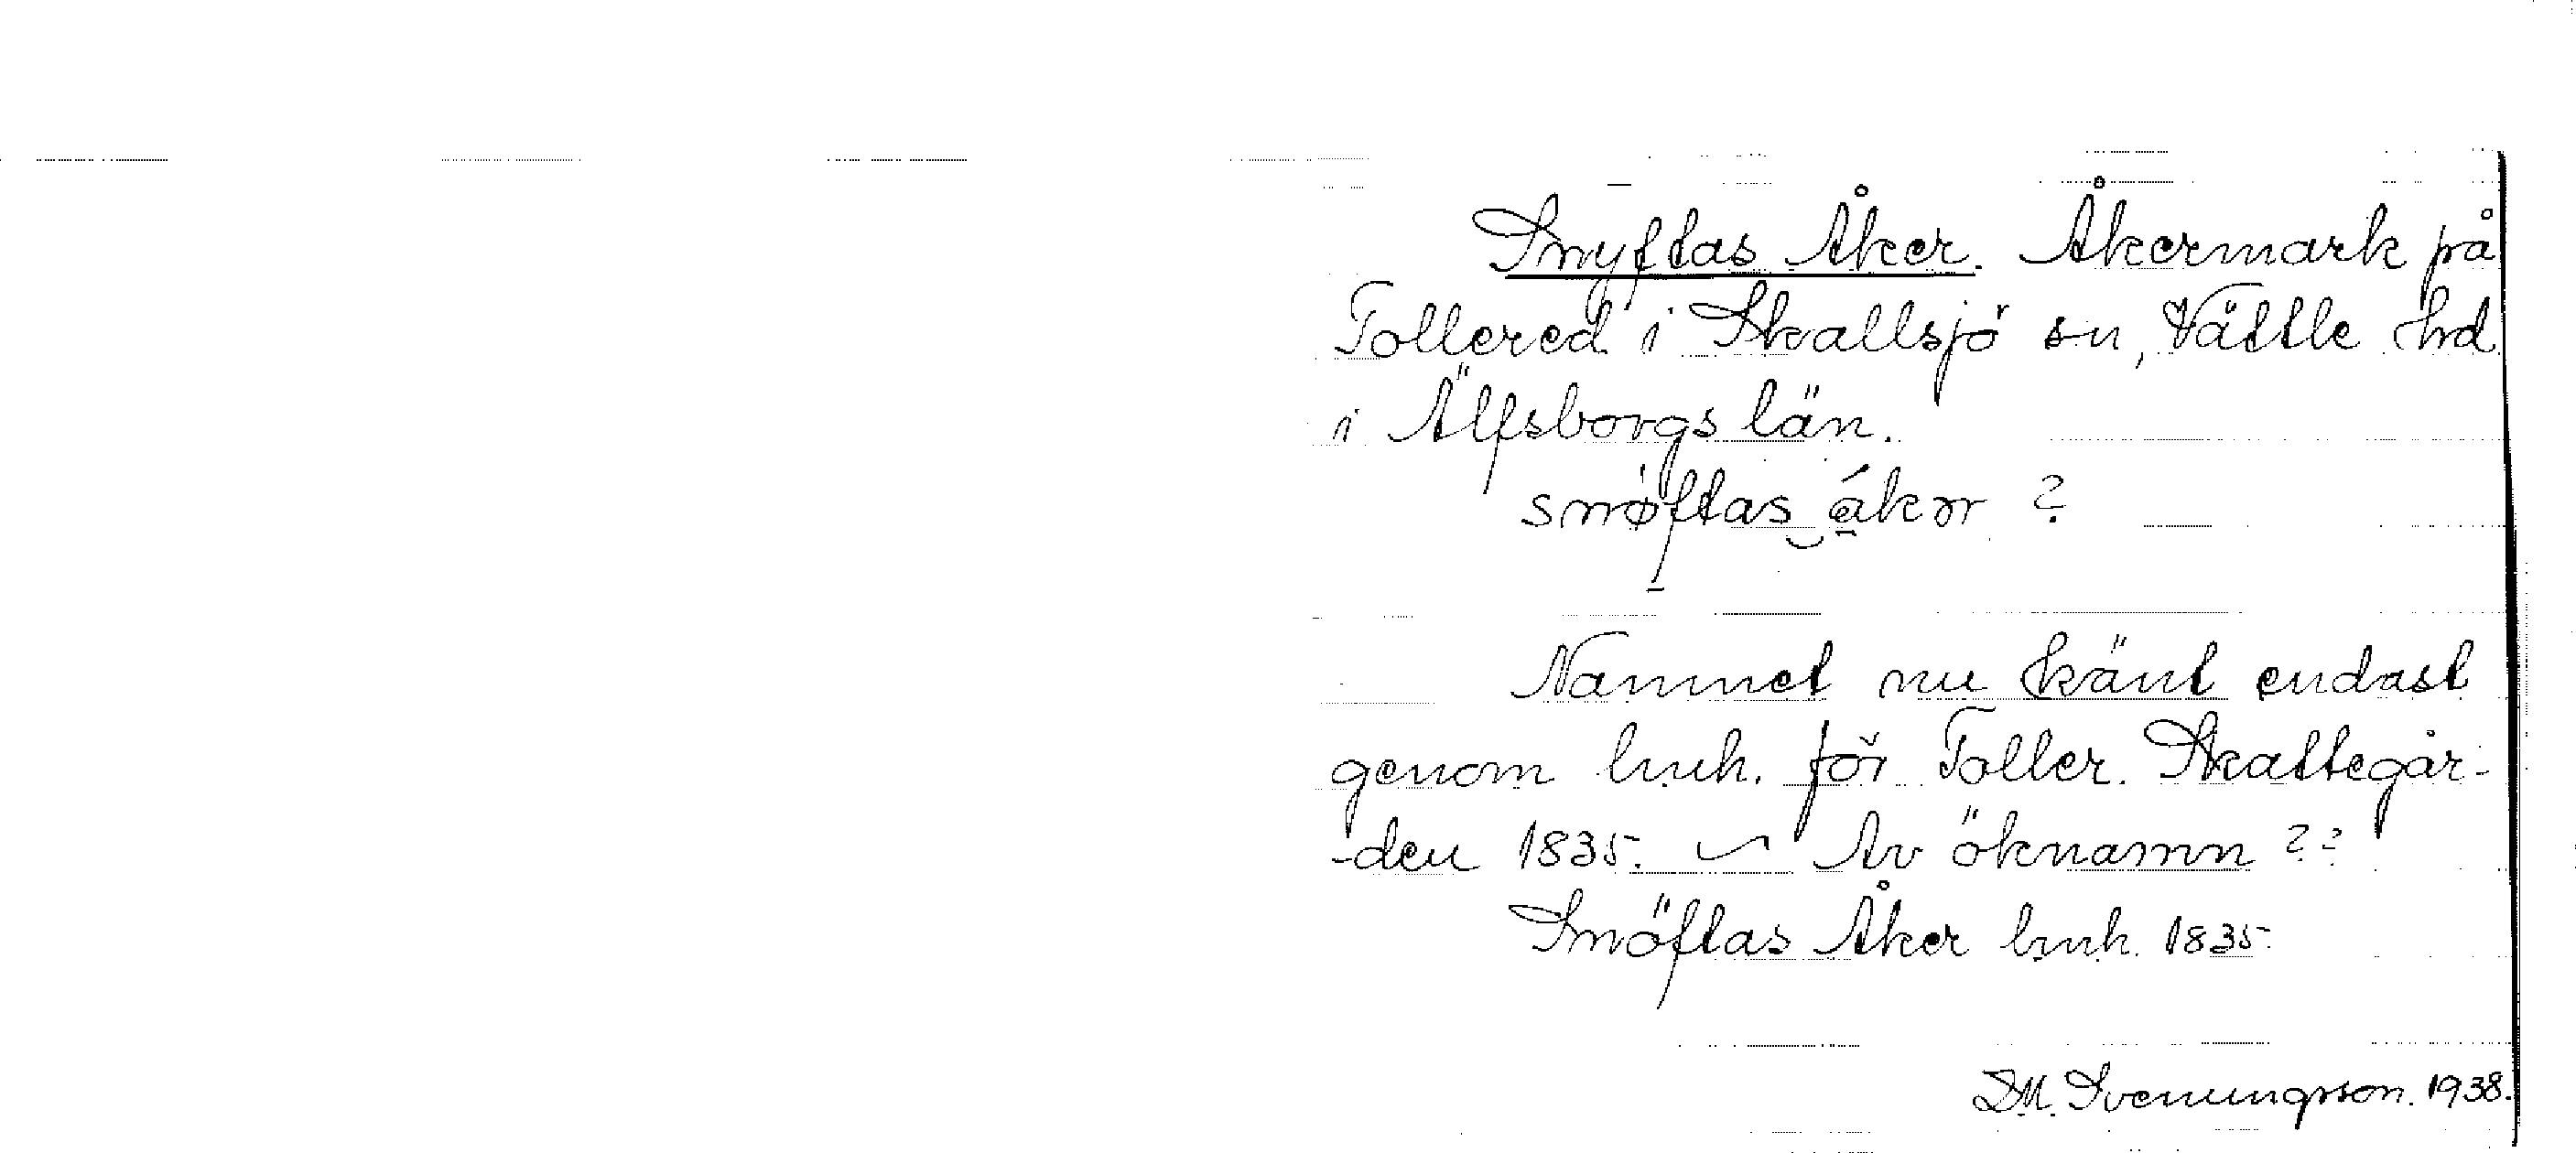 Snyftas Åker. Åkermark på
Tollered i Skallsjö sn, Vättle hd
i Älfsborgs län.
snøftas ákɒr ?
Namnet nu känt endast
genom lmh. för Toller. Skattegår-
-den 1835. ~ Av öknamn ??
Snöftas Åker lmh. 1835.
D.M. Svenungsson. 1938.